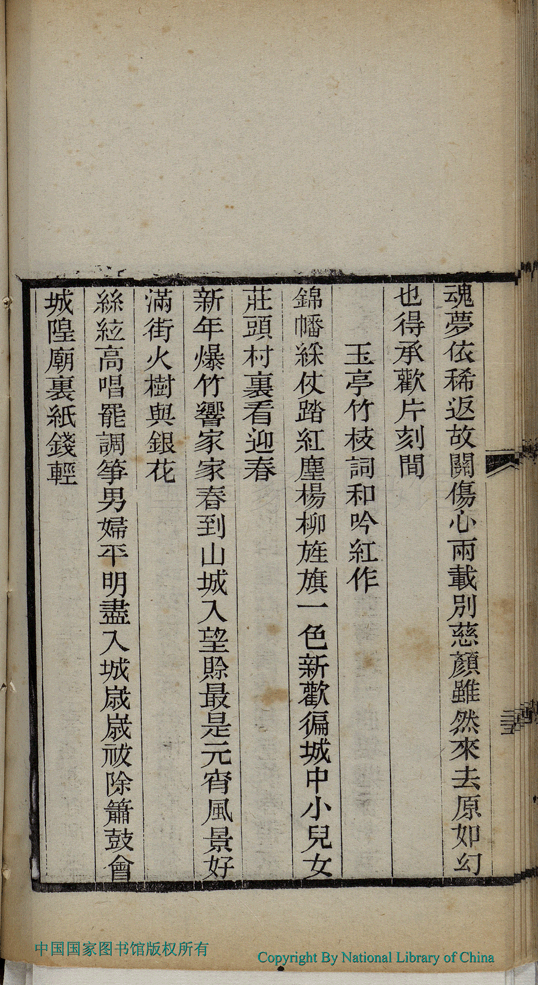 魂夢依稀返故關傷心兩載別慈顏雖然來去原如幻
也得承歡片刻間
玉亭竹枝詞和吟紅作
錦幡綵仗踏紅塵楊柳旌旗一色新歡徧城中小兒女
莊頭村裏看迎春
新年爆竹響家家春到山城入望賒最是元宵風景好
滿街火樹與銀花
絲絃高唱罷調箏男婦平明盡入城歲歲祓除簫鼓會
城隍廟裏紙錢輕
中国国家图书馆版权所有
Copyright By National Library of China